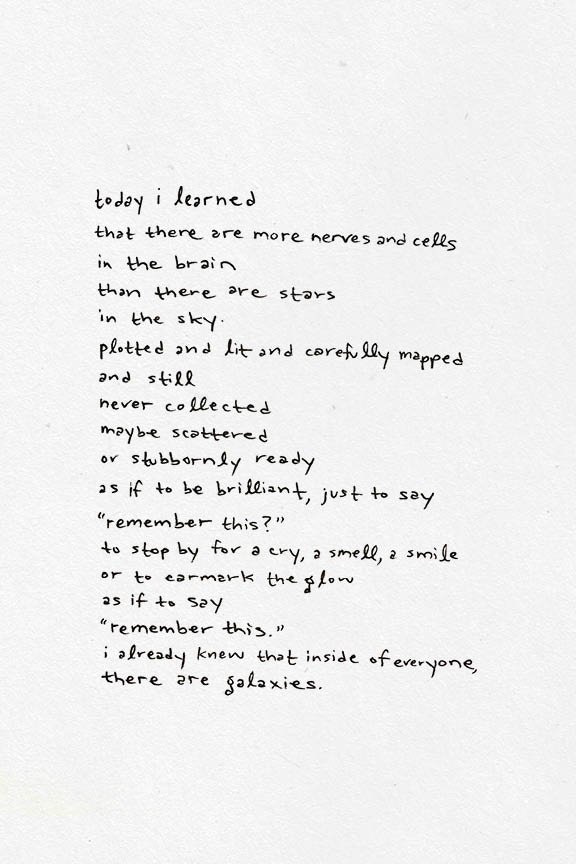 today i learned
that there are more nerves and cells
in the brain
than there are stars
in the sky.
plotted and lit and carefully mapped
and still
never collected
maybe scattered
or stubbornly ready
as if to be brilliant, just to say
"remember this?"
to stop by for a cry, a smell, a smile
or to earmark the glow
as if to say
"remember this."
i already knew that inside of everyone,
there are galaxies.